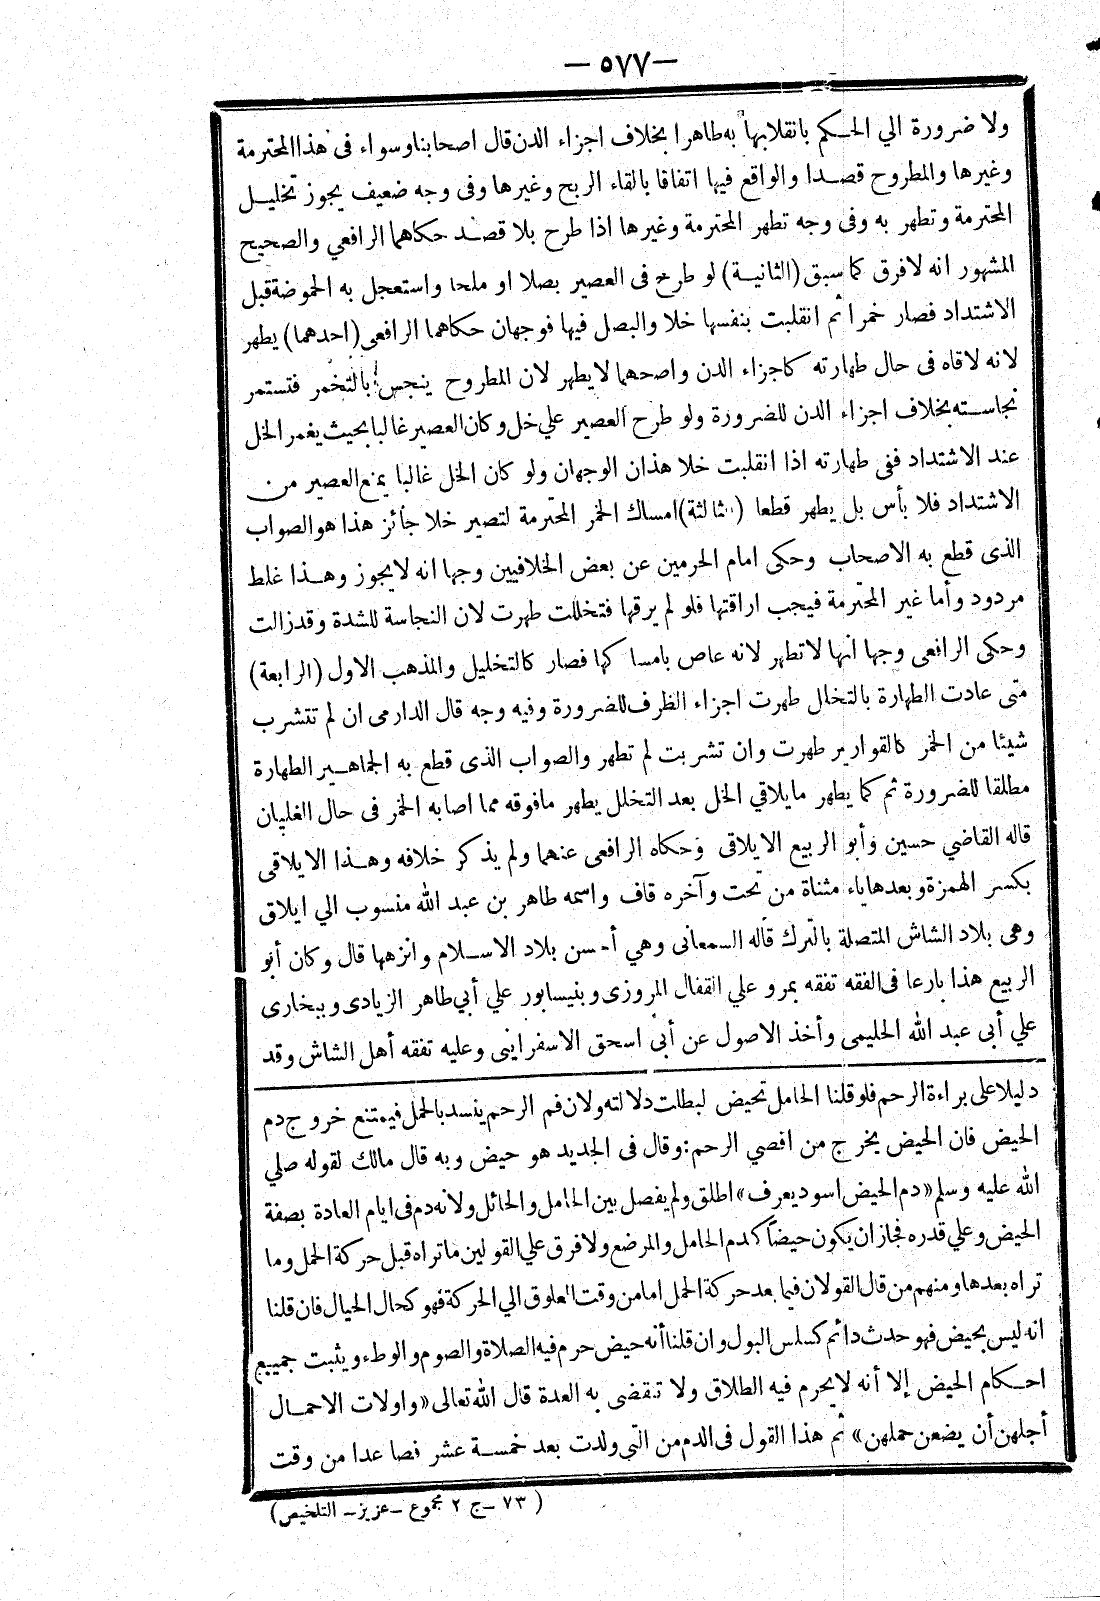 — ٥٧٧ —
ولا ضرورة الي الحكم بانقلابها به طاهرا بخلاف اجزاء الدن قال اصحابنا وسواء فى هذا المحترمة
وغيرها والمطروح قصدا والواقع فيها اتفاقا بالقاء الريح وغيرها وفى وجه ضعيف يجوز تخليل
المحترمة وتطهر به وفى وجه تطهر المحترمة وغيرها اذا طرح بلا قصد حكاهما الرافعي والصحيح
المشهور انه لا فرق كما سبق (الثانية) لو طرح فى العصير بصلا او ملحا واستعجل به الحموضة قبل
الاشتداد فصار خمرا ثم انقلبت بنفسها خلا والبصل فيها فوجهان حكاهما الرافعى (احدهما) يطهر
لانه لاقاه فى حال طهارته كاجزاء الدن واصحهما لا يطهر لان المطروح ينجس بالتخمر فتستمر
نجاسته بخلاف اجزاء الدن للضرورة ولو طرح العصير علي خل وكان العصير غالبا بحيث يغمر الخل
عند الاشتداد ففى طهارته اذا انقلبت خلا هذان الوجهان ولو كان الخل غالبا يمنع العصير من
الاشتداد فلا بأس بل يطهر قطعا (الثالثة) امساك الخمر المحترمة لتصير خلا جائز هذا هو الصواب
الذى قطع به الاصحاب وحكى امام الحرمين عن بعض الخلافيين وجها انه لا يجوز وهذا غلط
مردود وأما غير المحترمة فيجب اراقتها فلو لم يرقها فتخللت طهرت لان النجاسة للشدة وقد زالت
وحكى الرافعى وجها انها لا تطهر لانه عاص بامساكها فصار كالتخليل والمذهب الاول (الرابعة)
متى عادت الطهارة بالتخلل طهرت اجزاء الظرف للضرورة وفيه وجه قال الدارمى ان لم تتشرب
شيئا من الخمر كالقوارير طهرت وان تشربت لم تطهر والصواب الذى قطع به الجماهير الطهارة
مطلقا للضرورة ثم كما يطهر ما يلاقي الخل بعد التخلل يطهر ما فوقه مما اصابه الخمر فى حال الغليان
قاله القاضي حسين وأبو الربيع الايلاقى وحكاه الرافعى عنهما ولم يذكر خلافه وهذا الايلاقى
بكسر الهمزة وبعدها ياء مثناة من تحت وآخره قاف واسمه طاهر بن عبد الله منسوب الي ايلاق
وهى بلاد الشاش المتصلة بالترك قاله السمعانى وهي أحسن بلاد الاسلام وانزهها قال وكان أبو
الربيع هذا بارعا فى الفقه تفقه بمرو علي القفال المروزى وبنيسابور علي أبي طاهر الزيادى وببخارى
علي أبى عبد الله الحليمى وأخذ الاصول عن أبى اسحق الاسفراينى وعليه تفقه أهل الشاش وقد
دليلا على براءة الرحم فلو قلنا الحامل تحيض لبطلت دلالته ولان فم الرحم ينسد بالحمل فيمتنع خروج دم
الحيض فان الحيض يخرج من اقصي الرحم: وقال فى الجديد هو حيض وبه قال مالك لقوله صلي
الله عليه وسلم «دم الحيض اسود يعرف» اطلق ولم يفصل بين الحامل والحائل ولانه دم فى ايام العادة بصفة
الحيض وعلي قدره فجاز ان يكون حيضاً كدم الحامل والمرضع ولا فرق علي القولين ما تراه قبل حركة الحمل وما
تراه بعدها ومنهم من قال القولان فيما بعد حركة الحمل اما من وقت العلوق الي الحركة فهو كحال الحيال فان قلنا
انه ليس بحيض فهو حدث دائم كسلس البول وان قلنا أنه حيض حرم فيه الصلاة والصوم والوطء ويثبت جميع
احكام الحيض إلا أنه لا يحرم فيه الطلاق ولا تنقضى به العدة قال الله تعالى «واولات الاحمال
أجلهن أن يضعن حملهن» ثم هذا القول فى الدم من التى ولدت بعد خمسة عشر فصاعدا من وقت
( ٧٣ – ج ٢ مجموع – عزيز – التلخيص)